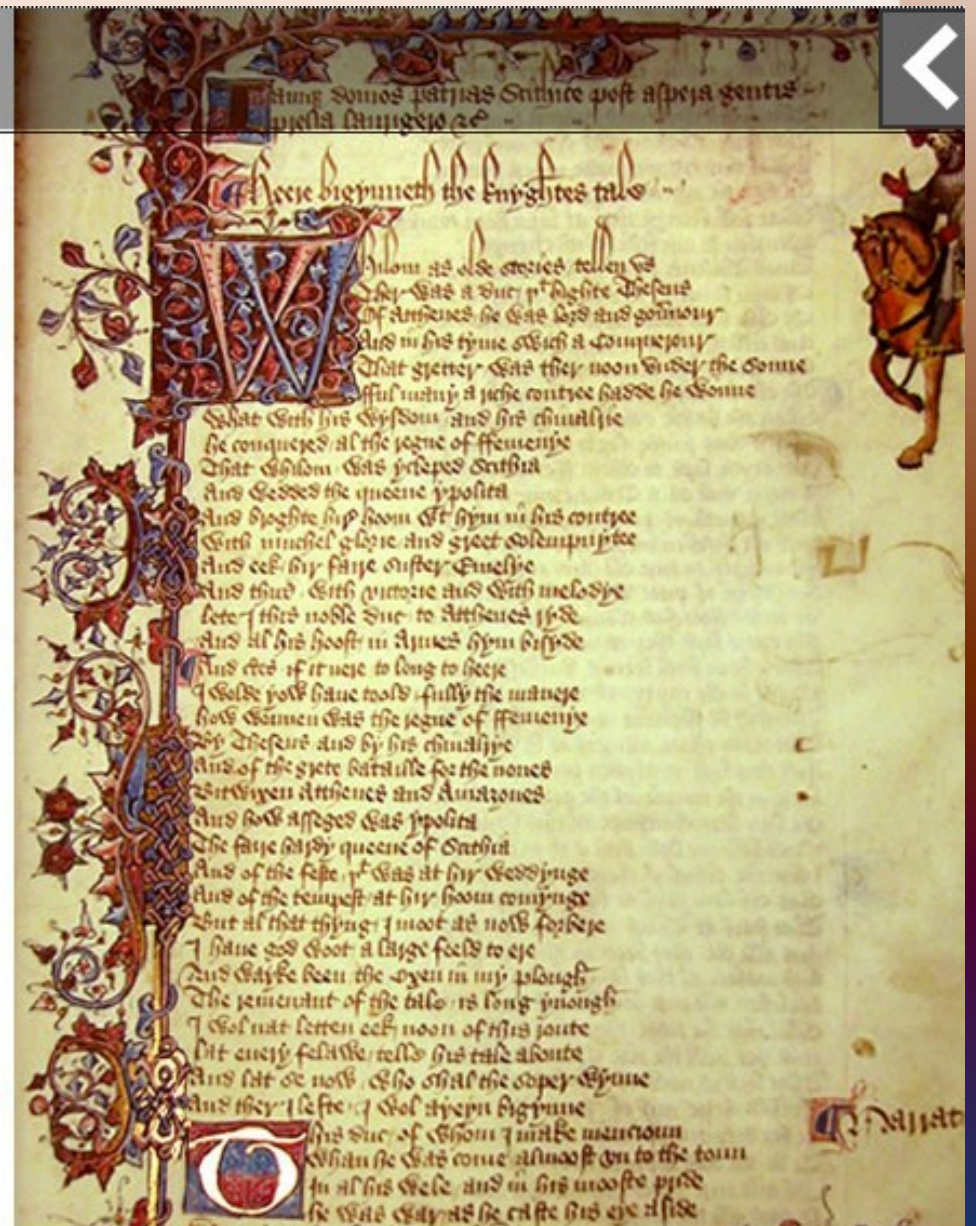 Iamque domos patrias Scithice post aspera gentis
prelia laurigero &c
Heere bigynneth the knyghtes tale
Whilom as olde stories tellen us
Ther was a duc þt highte Theseus
Of Atthenes he was lord and gouernour
And in his tyme swich a conquerour
That gretter was ther noon under the sonne
fful many a riche contree hadde he wonne
What with his wysdom and his chiualrie
he conquered al the regne of ffemenye
That whilom was ycleped Scithia
And wedded the queene ypolita
And broghte hir hoom wt hym in his contree
With muchel glorie and greet solempnytee
And eek hir faire suster Emelye
And thus with victorie and with melodye
lete I this noble duc to Atthenes ryde
And al his hoost in Armes hym bisyde
And certes if it nere to long to heere
I wolde yow haue toold fully the manere
how wonnen was the regne of ffemenye
By Theseus and by his chiualrye
And of the grete bataille for the nones
Bitwixen Atthenes and Amazones
And how asseged was ypolita
The faire hardy queene of Scithia
And of the feste þt was at hir weddynge
And of the tempest at hir hoom comynge
But al that thyng I moot as now forbere
I haue god woot a large feeld to ere
And wayke been the oxen in my plough
The remenant of the tale is long ynough
I wol nat letten eek noon of this route
lat euery felawe telle his tale aboute
And lat se now who shal the soper wynne
And ther I lefte I wol ayeyn bigynne
This duc of whom I make mencioun
Whan he was come almoost vn to the toun
In al his wele and in his mooste pride
he was war as he caste his eye aside
Narrat